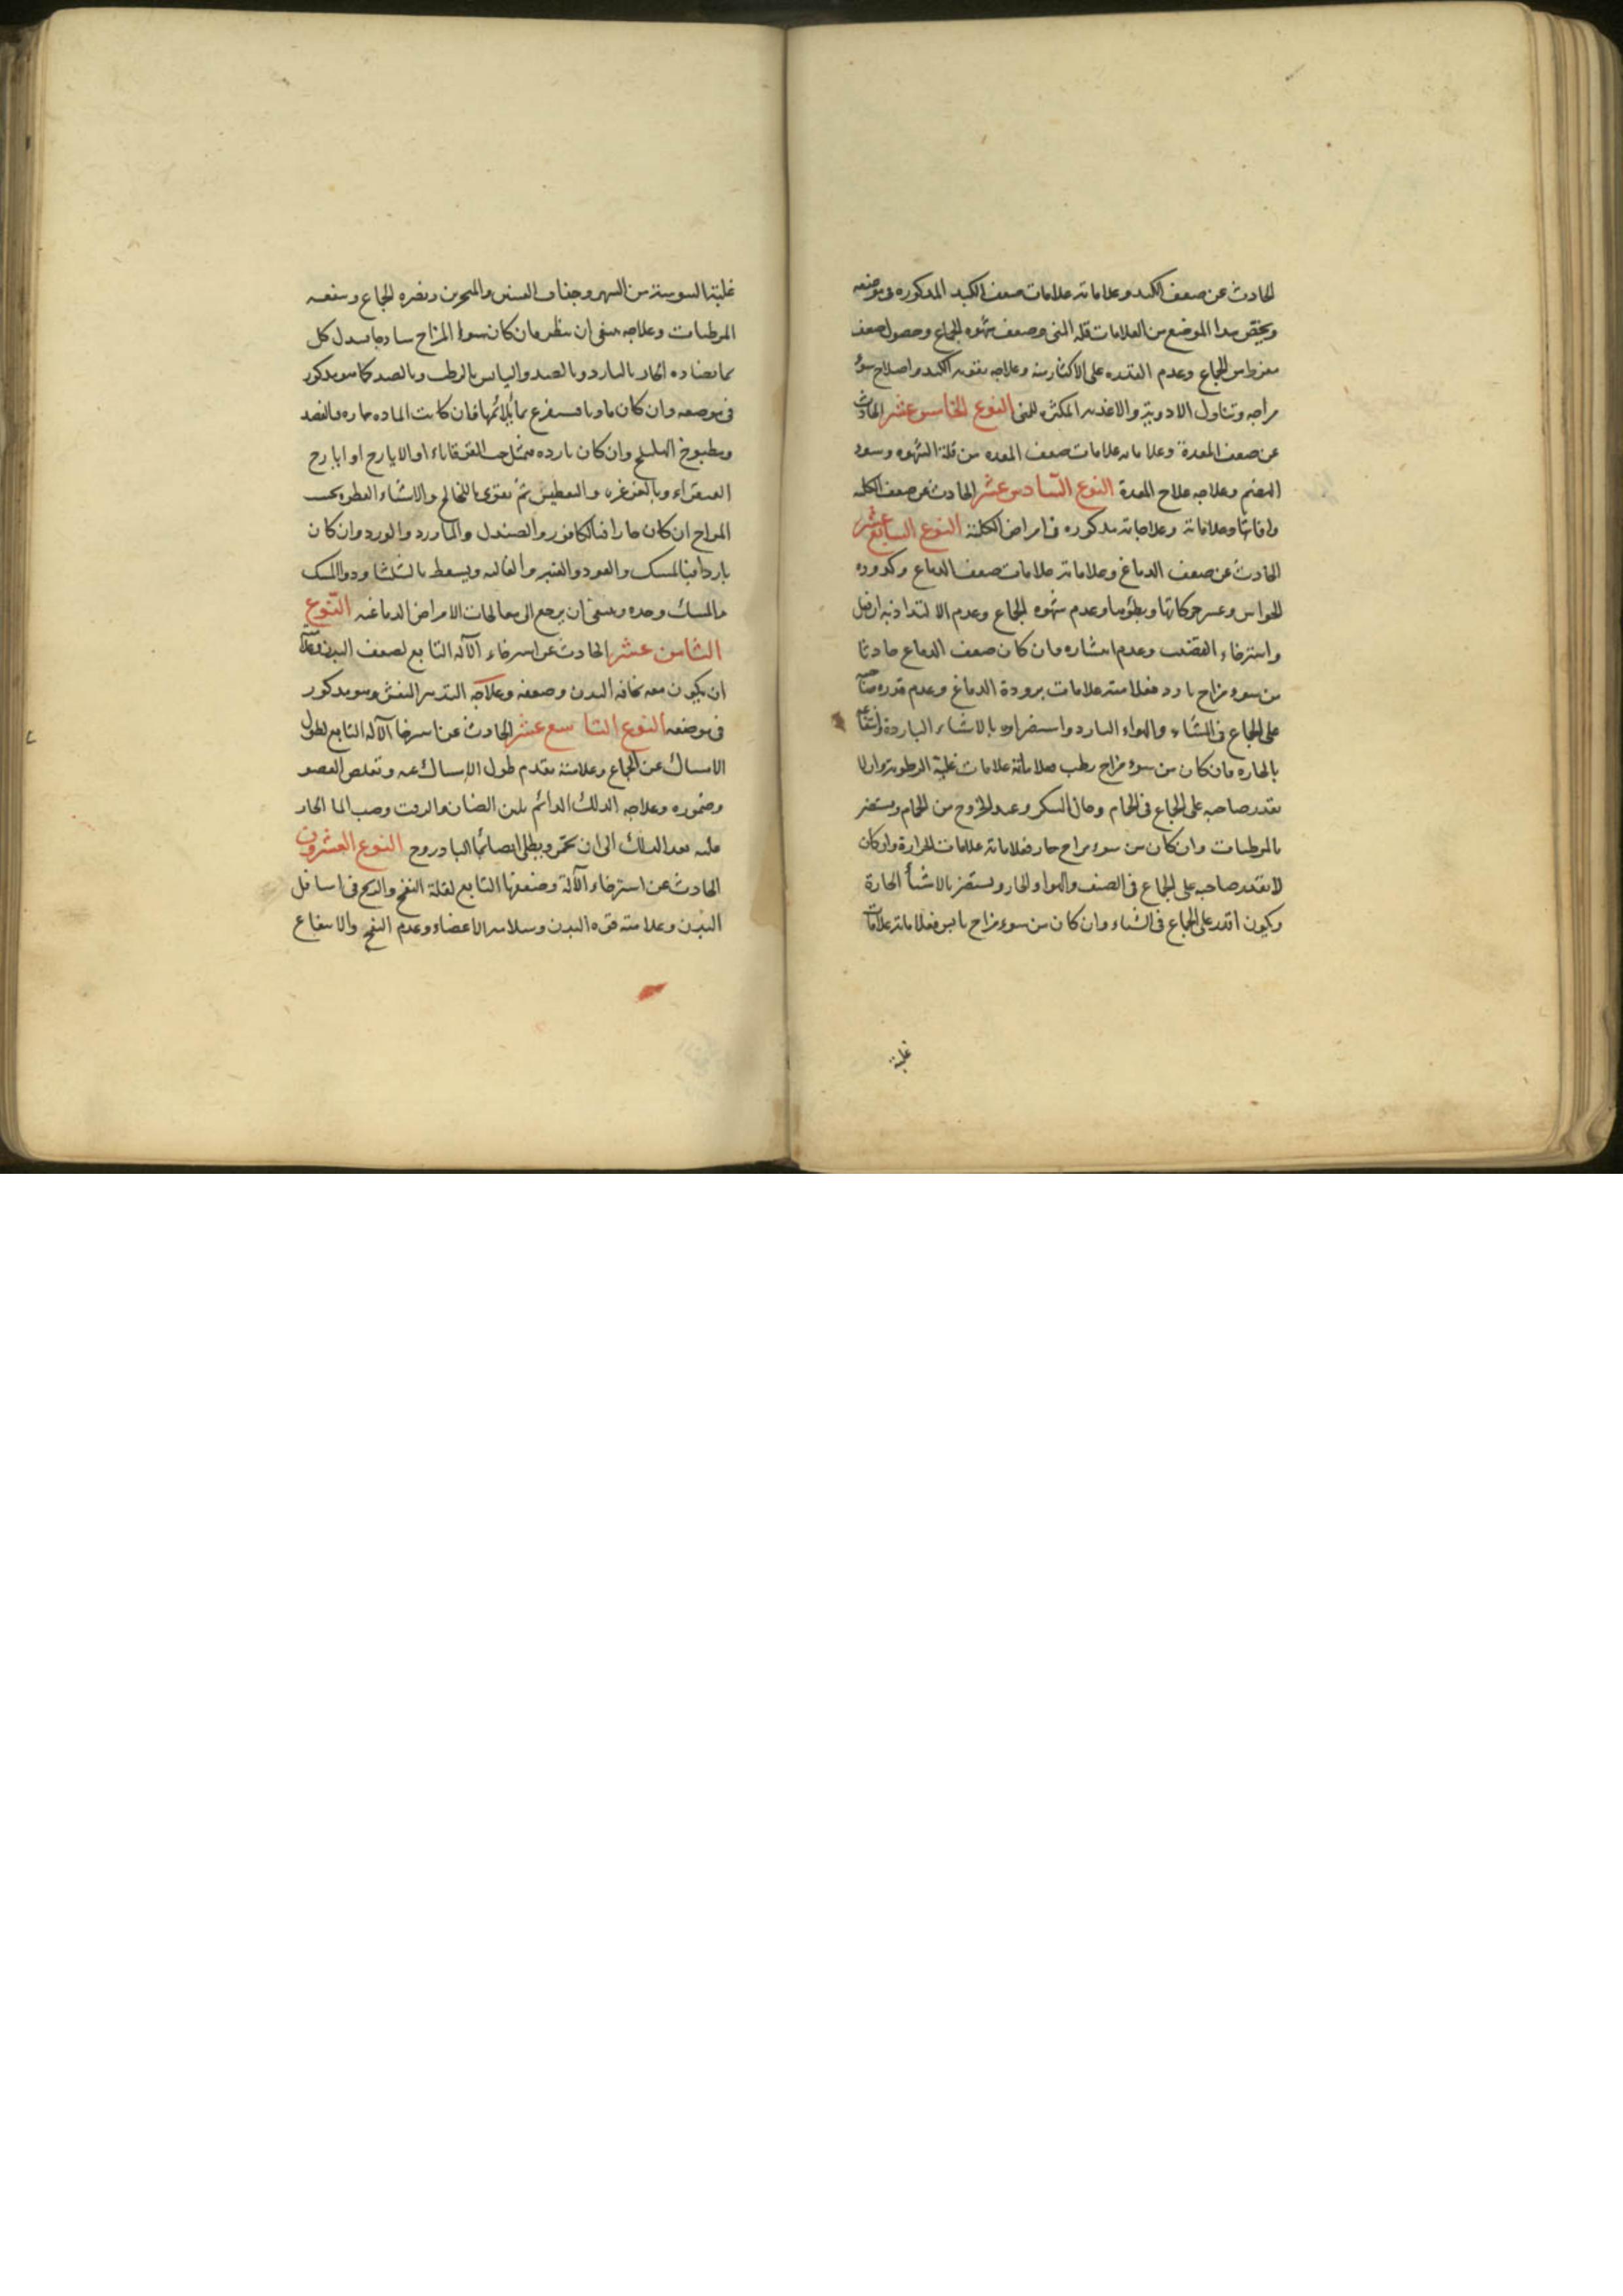 الحادث عن ضعف الكبد وعلاماته علامات ضعف الكبد المذكوره فى موضعه
ويختص بهذا الموضع من العلامات قلة المنى وضعف شهوه الجماع وحصول ضعف
مفرط من الجماع وعدم القدره على الاكثار منه وعلاجه تقويه الكبد واصلاح سوء
مزاجه وتناول الادوية والاغذيه المكثره للمنى النوع الخامس عشر الحادث
عن ضعف المعدة وعلاماته علامات ضعف المعده من قلة الشهوه وسوء
الهضم وعلاجه علاج المعدة النوع السادس عشر الحادث عن ضعف الكليه
وافاتها وعلاماته وعلاجاته مذكوره فى امراض الكلية النوع السابع عشر
الحادث عن ضعف الدماغ وعلاماته علامات ضعف الدماغ وكدوره
الحواس وعسر حركاتها وبطؤها وعدم شهوه الجماع وعدم الالتذاذ به
واسترخاء القضيب وعدم انتشاره وان كان ضعف الدماغ حادثا
من سوء مزاج بارد فعلامته علامات برودة الدماغ وعدم قدره صاحبه
على الجماع فى الشتاء والهواء البارد واستضراره بالاشياء الباردة وانتفاعه
بالحاره وان كان من سوء مزاج رطب فعلاماته علامات غلبة الرطوبة وان لا
يقدر صاحبه على الجماع فى الحمام وحال السكر وعند الخروج من الحمام ويستضر
بالمرطبات وان كان من سوء مزاج حار فعلاماته علامات الحرارة وان كان
لا يقدر صاحبه على الجماع فى الصيف والهواء الحار ويستضر بالاشيأ الحارة
ويكون اقدر على الجماع فى الشتاء وان كان من سوء مزاج يابس فعلاماته علامات
غلبة
غلبة اليبوسة من السهر وجفاف العينين والمنخرين ويضره الجماع وينفعه
المرطبات وعلاجه ينبغى ان ينظر فان كان سوء المزاج ساذجا يبدل كل
بما يضاده الحار بالبارد وبالضد واليابس بالرطب وبالضد كما هو مذكور
فى موضعه وان كان ماديا يستفرغ بما يلائمها فان كانت الماده حاره فبالفصد
ومطبوخ الهليلج وان كان بارده فبمثل حب القوقاياء او الايارج او ايارج
الفيقراء وبالغرغره والتعطيس ثم يقوى بالنخالح والاشياء العطره بحسب
المزاج ان كان حارا فبالكافور والصندل والماورد والورد وان كان
باردا فبالمسك والعود والعنبر والغاليه ويسعط بالشلثا ودواالمسك
بالمسك وحده وينبغى ان يرجع الى معالجات الامراض الدماغيه النوع
الثامن عشر الحادث عن استرخاء الآله التابع لضعف البدن وعلامته
ان يكون معه نحافه البدن وضعفه وعلاجه التدبير المنعش وهو مذكور
فى موضعه النوع التاسع عشر الحادث عن استرخا الآله التابع لطول
الامساك عن الجماع وعلامته تقدم طول الامساك عنه وتقلص العضو
وضموره وعلاجه الدلك الدائم بلبن الضان والزيت وصب الما الحار
عليه بعد الدلك الى ان يحمر ويطلى ايضا بما البادروج النوع العشرون
الحادث عن استرخاء الآلة وضعفها التابع لقلة النفخ والريح فى اسافل
البدن وعلامته قوه البدن وسلامه الاعضاء وعدم النفخ والانتفاع